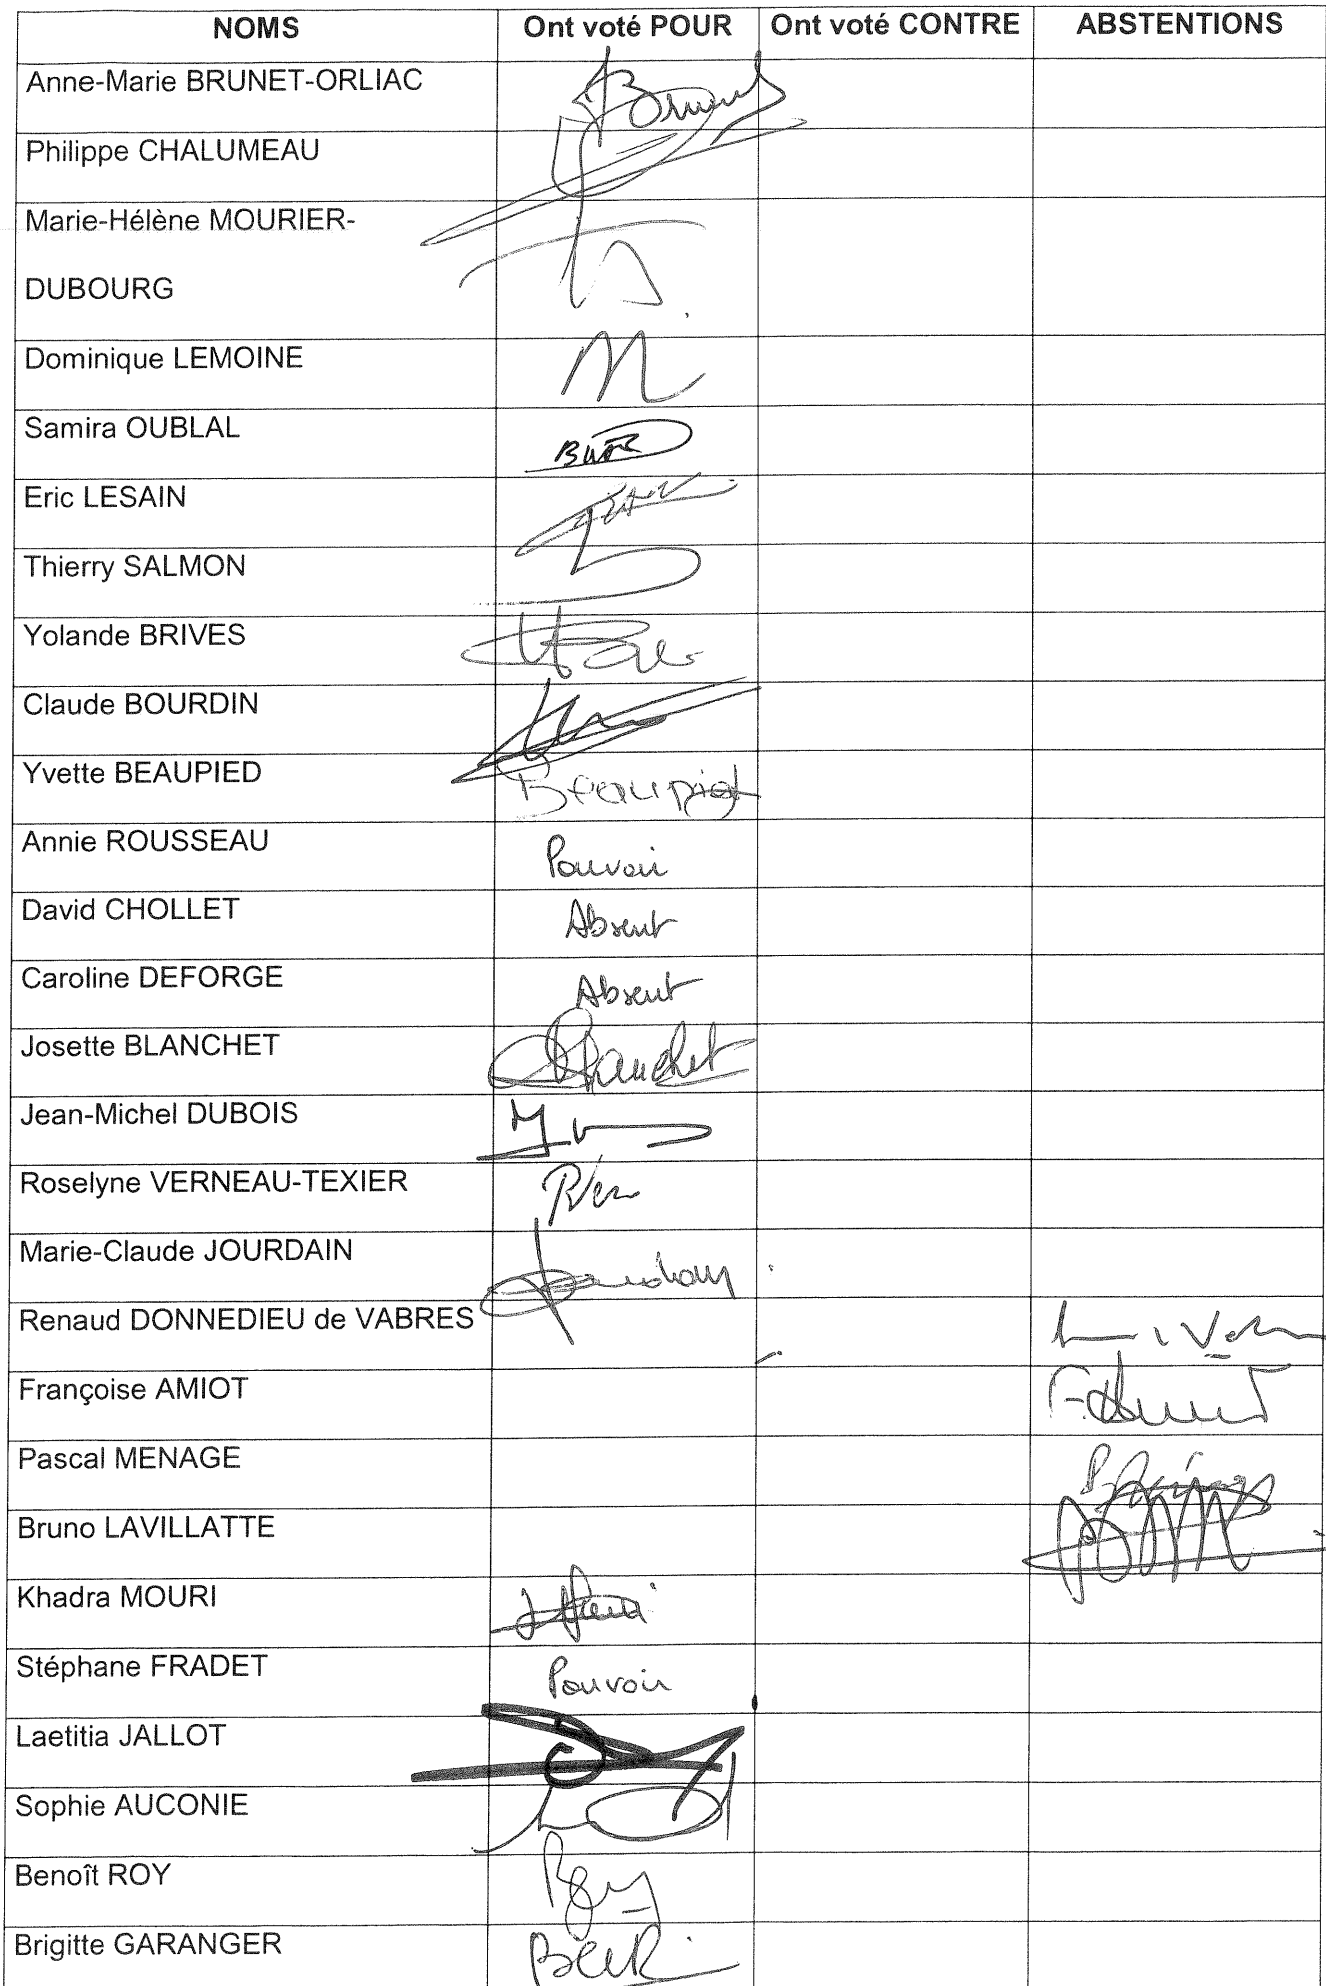 NOMS Ont voté POUR Ont voté CONTRE ABSTENTIONS
Anne-Marie BRUNET-ORLIAC
Philippe CHALUMEAU
Marie-Hélène MOURIER-
DUBOURG
Dominique LEMOINE
Samira OUBLAL
Eric LESAIN
Thierry SALMON
Yolande BRIVES
Claude BOURDIN
Yvette BEAUPIED Beaupied
Annie ROUSSEAU Pouvoir
David CHOLLET Absent
Caroline DEFORGE Absent
Josette BLANCHET Blanchet
Jean-Michel DUBOIS
Roselyne VERNEAU-TEXIER
Marie-Claude JOURDAIN
Renaud DONNEDIEU de VABRES
Françoise AMIOT
Pascal MENAGE
Bruno LAVILLATTE
Khadra MOURI
Stéphane FRADET Pouvoir
Laetitia JALLOT
Sophie AUCONIE
Benoît ROY
Brigitte GARANGER